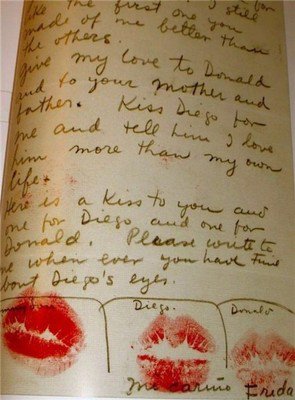 like the first one you
made of me better than
the others.
Give my love to Donald
and to your mother and
father. Kiss Diego for
me and tell him I love
him more than my own
life.
Here is a Kiss to you and
one for Diego and one for
Donald. Please write to
me when ever you have time
about Diego's eyes.
Diego. Donald
Mi cariño Frida